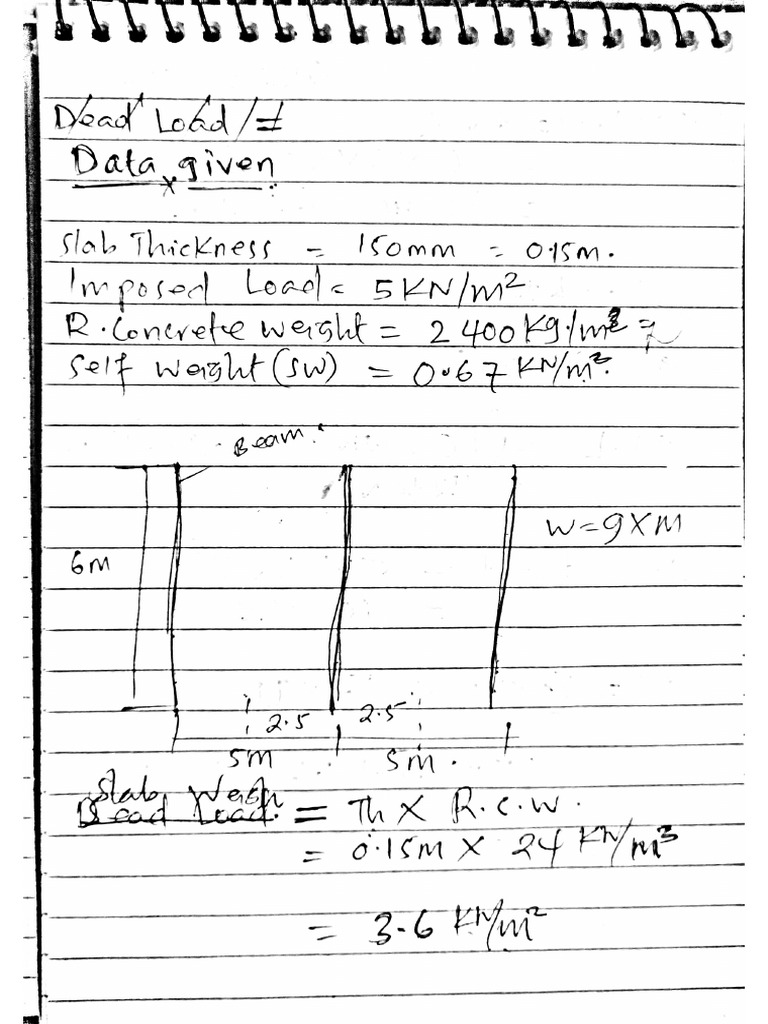 Dead Load/=
Data given
Slab Thickness = 150mm = 0.15m.
Imposed Load = 5KN/m²
R.Concrete weight = 2400kg/m³ =
Self Weight (SW) = 0.67 KN/m².
Beam.
W=9XM
6M
2.5 2.5
5m 5m.
Slab Weigh
Dead Load. = Th X R.C.W.
= 0.15M X 24 KN/m³
= 3.6 KN/m²